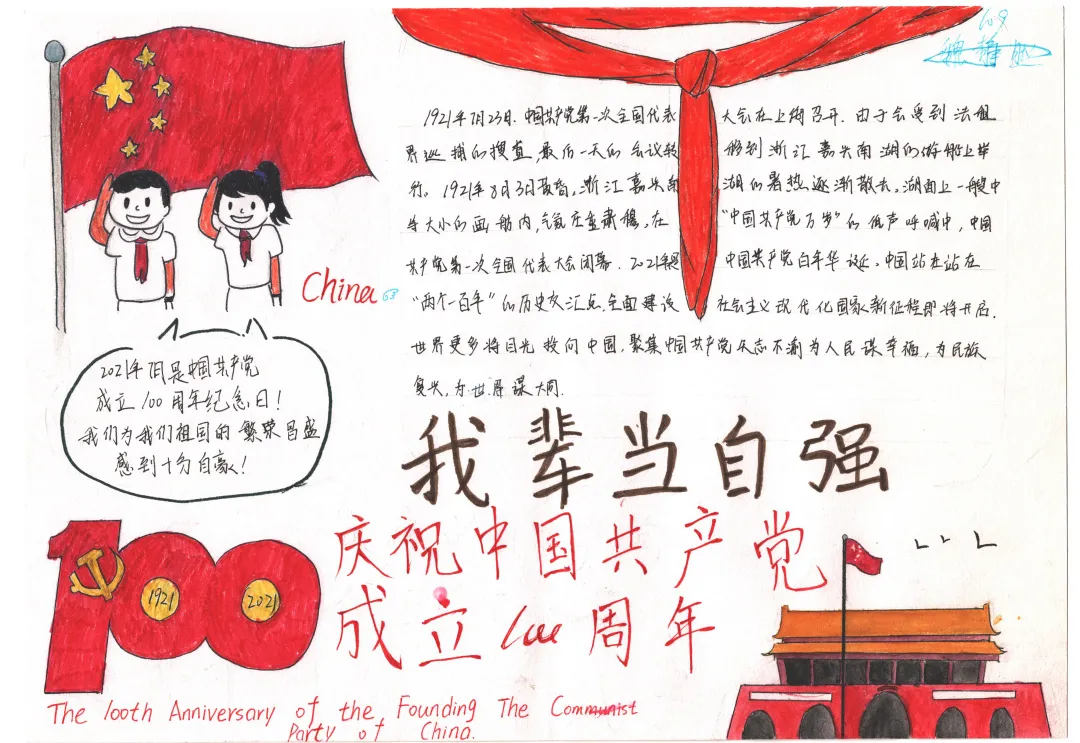 609
1921年7月23日.中国共产党第一次全国代表大会在上海召开.由于会受到法租
界巡捕的搜查,最后一天的会议转移到浙江嘉兴南湖的游船上举
行。1921年8月3日黄昏,浙江嘉兴南湖的暑热逐渐散去,湖面上一艘中
等大小的画舫内,气氛庄重肃穆,在"中国共产党万岁"的低声呼喊中,中国
共产党第一次全国代表大会闭幕.2021年中国共产党百年华诞。中国站在站在
"两个一百年"的历史交汇点.全面建设社会主义现代化国家新征程即将开启.
世界更多将目光投向中国,聚集中国共产党矢志不渝为人民谋幸福,为民族
复兴,为世界谋大同.
China
2021年7月是中国共产党
成立100周年纪念日!
我们为我们祖国的繁荣昌盛
感到十分自豪!
我辈当自强
庆祝中国共产党
成立100周年
100
1921
2021
The 100th Anniversary of the Founding The Communist
Party of China.